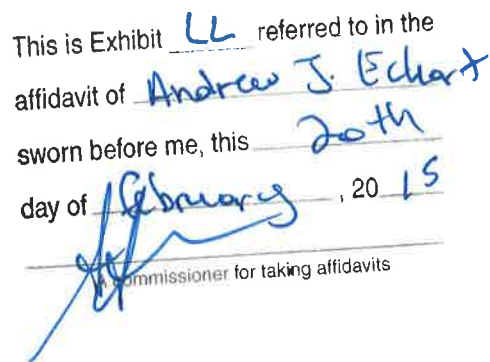 This is Exhibit LL referred to in the
affidavit of Andrew J. Eckart
sworn before me, this 20th
day of february , 20 15
A commissioner for taking affidavits